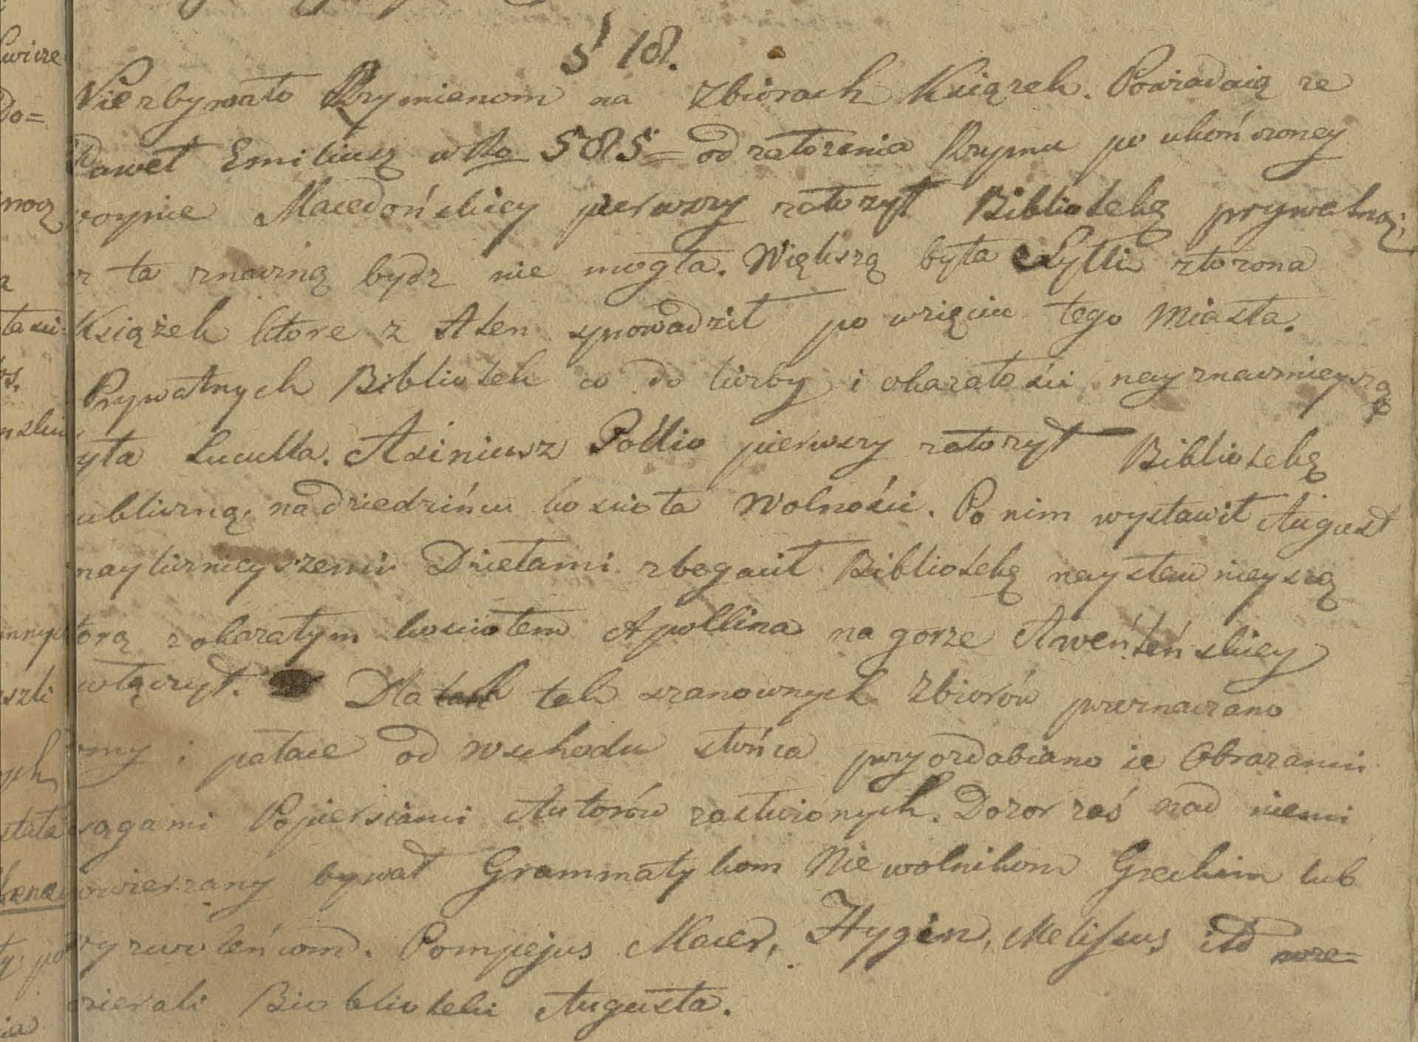 § 18.
Niezbywało Rzymianom na Zbiorach Książek. Powiadaią ze
Paweł Emiliusz w Ro 585= od załozenia Rzymu po ukończoney
woynie Macedońskiey pierwszy założył Bibliotekę prywatną;
z ta znaczną bydz nie mogła. Większą była Sylli złozona
Książek które z Aten sprowadził po wzięciu tego Miasta.
Prywatnych Bibliotek co do liczby i okazałości nayznacznieyszą
yła Luculla. Asiniusz Pollio pierwszy założył Bibliotekę
ubliczną, na dziedzińcu kościoła Wolności. Po nim wystawił August
naylicznieyszemi Dziełami zbogacił Bibliotekę naysławnieyszą
tórą z okazałym kościołem Apollina na gorze Awenteńskiey
włączył. Dla tak szanownych Zbiorów przeznaczano
omy i pałace od wschodu słońca przyozdabiano ie Obrazami
sągami Popiersiami Autorów zasłużonych. Dozor zaś nad niemi
owierzany bywał Grammatykom Niewolnikom Greckim lub
wyzwoleńcom. Pompejus Macer, Hygin, Melissus itd
ozierali Biobliotekii Augusta.